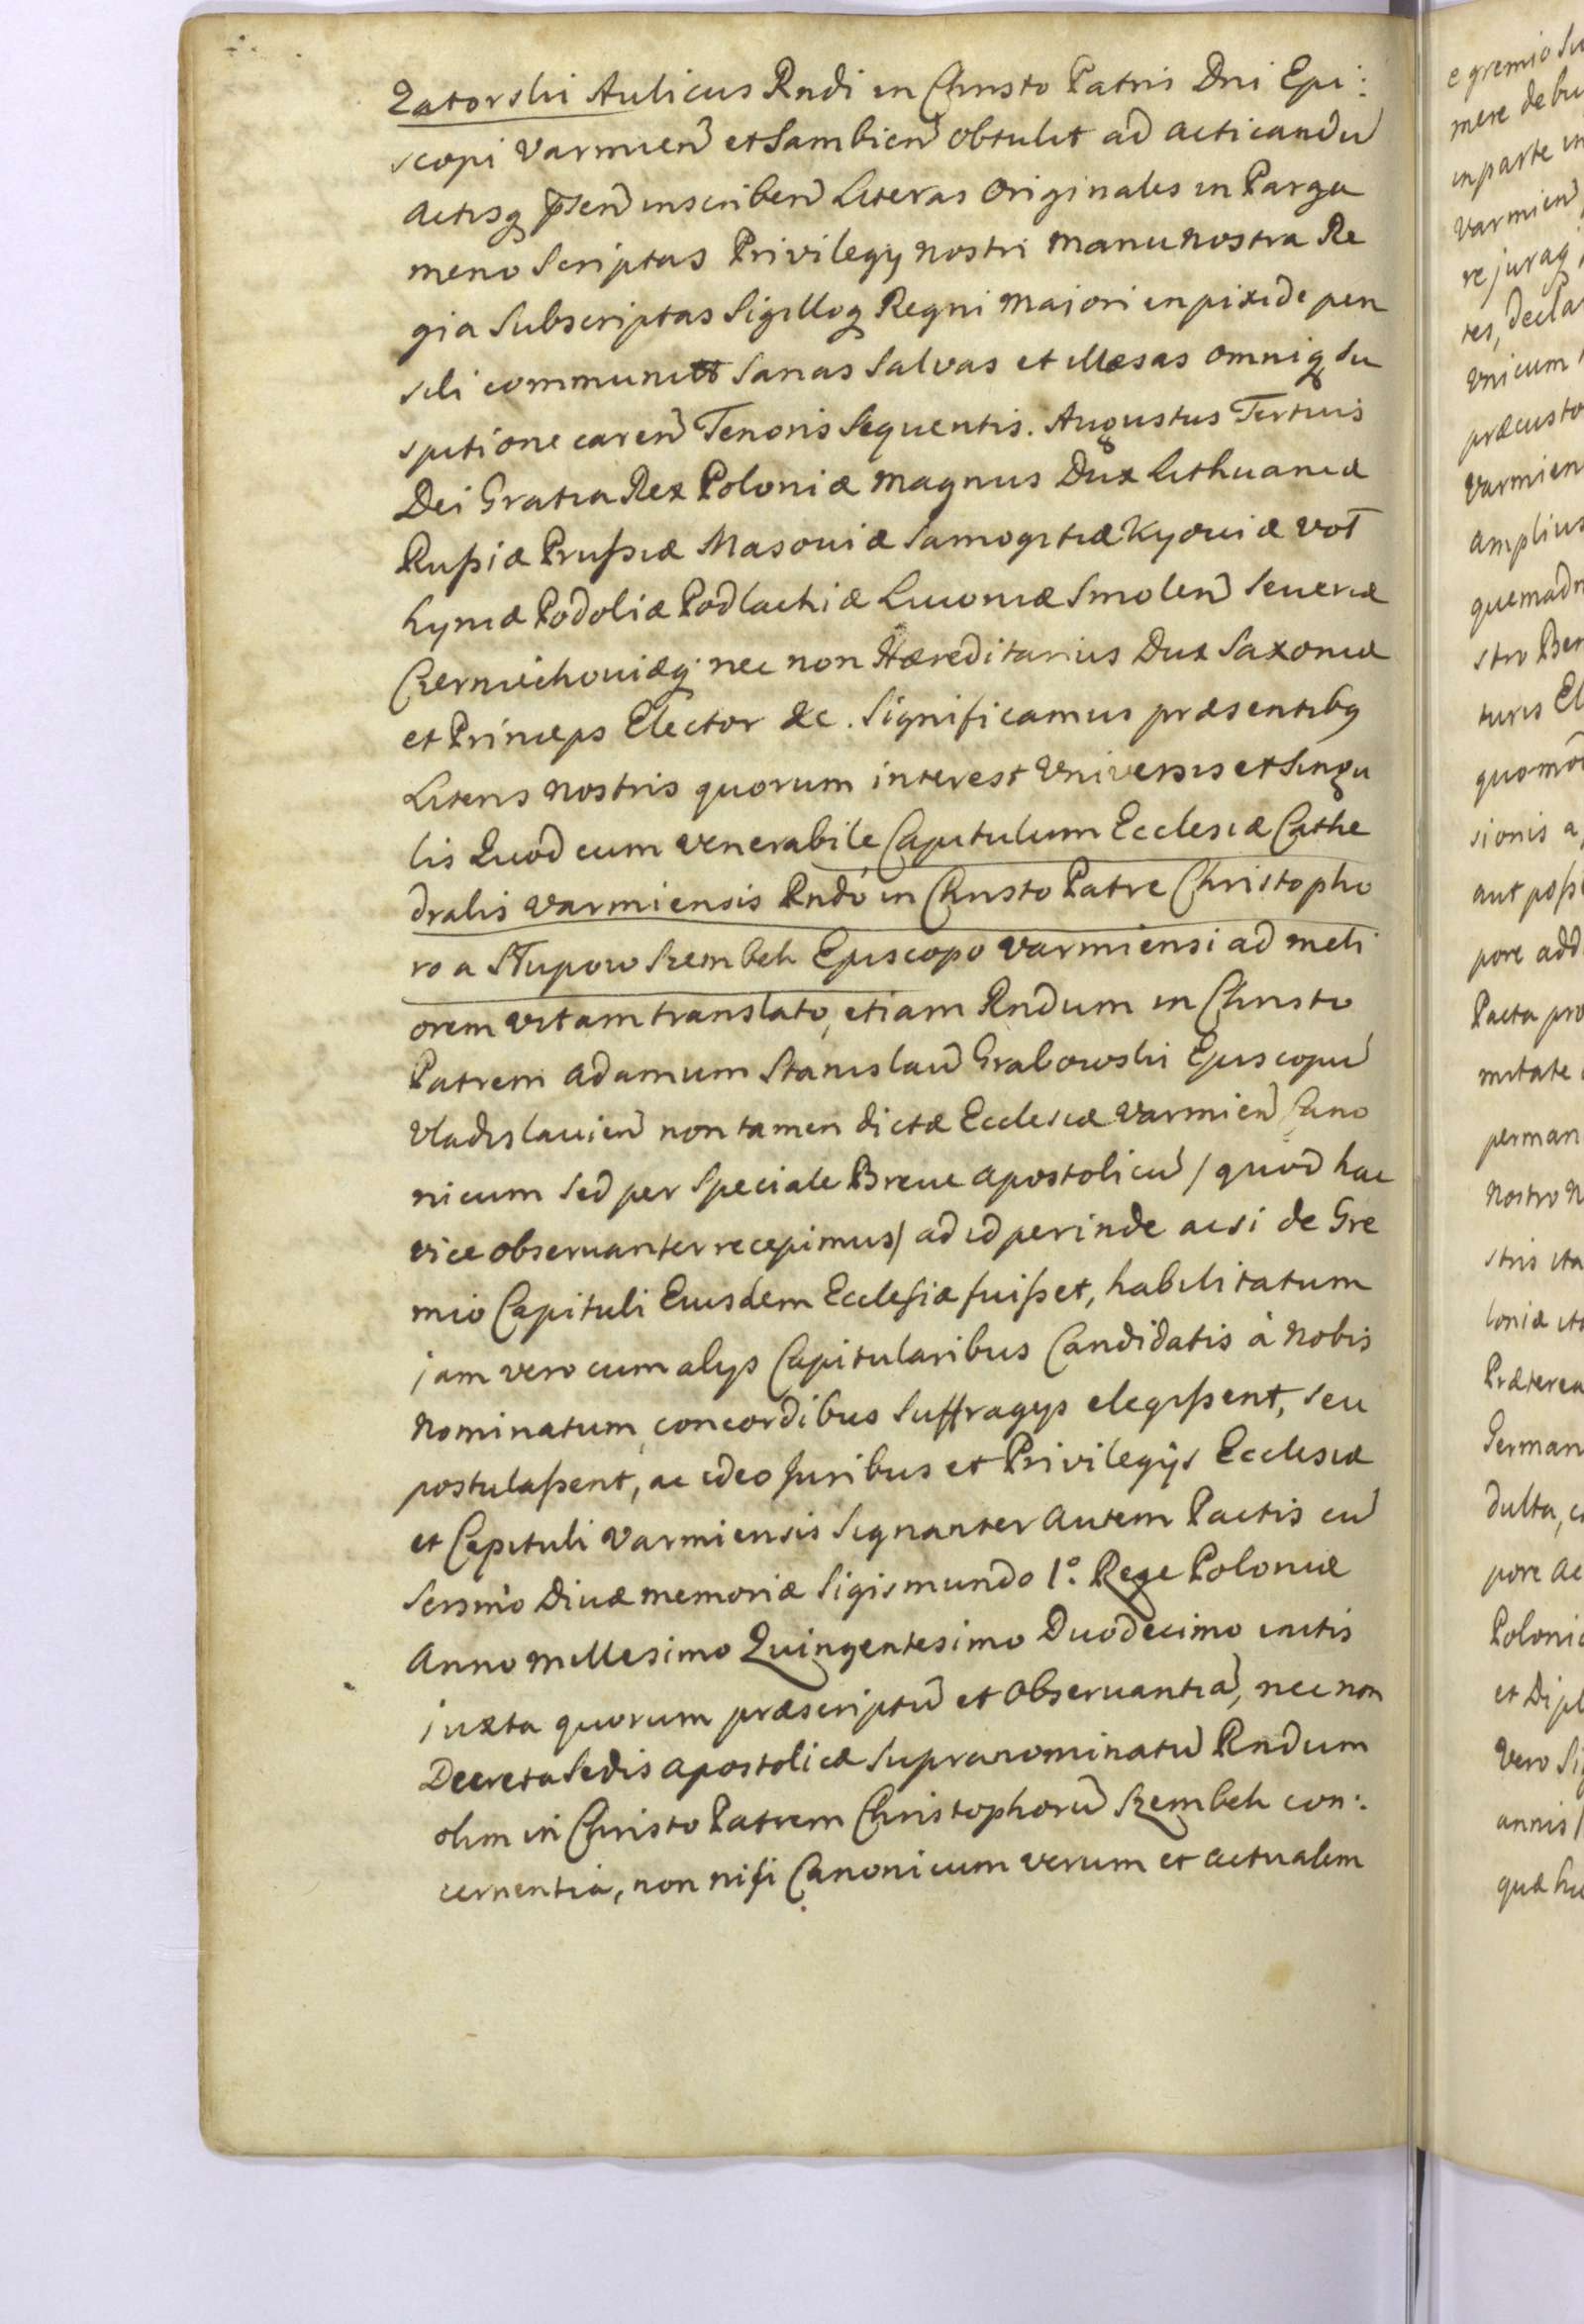 Zatorski Aulicus Rndi in Christo Patris Dni Epi:
scopi Varmien et Sambien obtulit ad acticandu
actisq pñsen inscriben Literas Originales in Parga
meno Scriptas Privilegy nostri manu nostra Re
gia Subscriptas Sigilloq Regni Majori in pixide pen
sili communitt Sanas Salvas et illæsas omniq su
spitione caren Tenoris Sequentis. Augustus Tertius
Dei Gratia Rex Poloniæ Magnus Dux Lithuaniæ
Rußiæ Prußiæ Masoviæ Samogitiæ Kyoviæ Vol
hyniæ Podoliæ Podlachiæ Livoniæ Smolen Severiæ
Czerniechoviæq nec non Hæreditarius Dux Saxoniæ
et Princeps Elector &c. Significamus præsentibq
Literis nostris quorum interest Universis et Singu
lis Quod cum Venerabile Capitulum Ecclesiæ Cathe
dralis Varmiensis Rndo in Christo Patre Christopho
ro a Słupow Szembek Episcopo Varmiensi ad meli
orem vitam translato, etiam Rndum in Christo
Patrem Adamum Stanislau Grabowski Episcopu
Vladislavien non tamen dictæ Ecclesiæ Varmien Cano
nicum Sed per Speciale Breve Apostolicu / quod hac
vice observanter recepimus / ad id perinde acsi de Gre
mio Capituli Eiusdem Ecclesiæ fuißet, habilitatum
jam vero cum alys Capitularibus Candidatis à Nobis
Nominatum, concordibus Suffragys elegißent, seu
postulaßent, ac ideo Juribus et Privilegijs Ecclesiæ
et Capituli Varmiensis Signanter autem Pactis cu
Sersmo Divæ memoriæ Sigismundo 1º. Rege Poloniæ
Anno millesimo Quingentesimo Duodecimo initis
juxta quorum præscriptu et Observantia, nec non
Decreta Sedis Apostolicæ Supranominatu Rndum
olim in Christo Patrem Christophoru Szembek con:
cernentia, non nisi Canonicum verum et actualem
e gremio Su
mere debu
in parte in
Varmien,
re juraq
tes, decla
Unicum
præcusto
Varmien
amplius
quemadm
stro Ber
turis El
quomod
sionis a
aut poßi
pore add
Pacta pro
mitate
perman
Nostro N
stris ita
loniæ ita
Præterea
German
dulta, c
pore ac
Polonic
et Dipl
Vero Sig
annis /
quæ hu